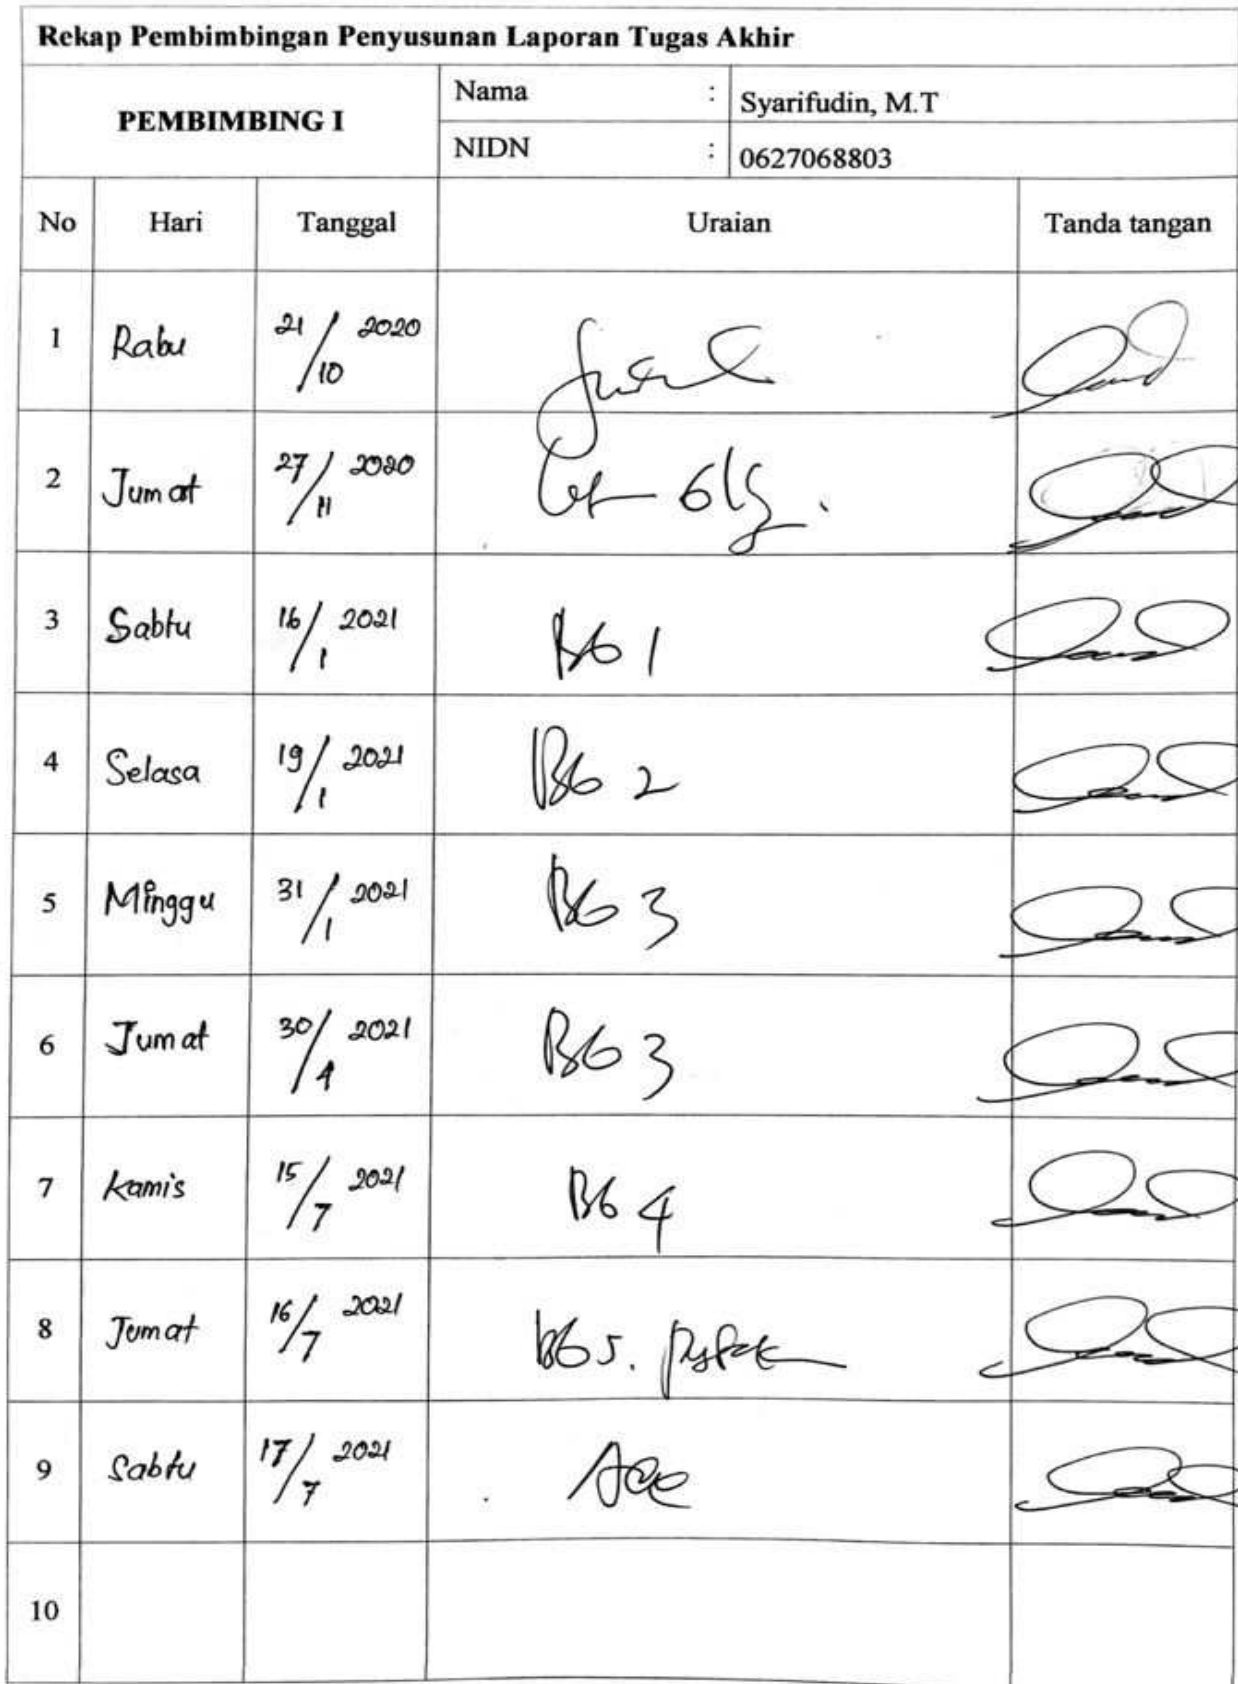 Rekap Pembimbingan Penyusunan Laporan Tugas Akhir
PEMBIMBING I
Nama : Syarifudin, M.T
NIDN : 0627068803
No Hari Tanggal Uraian Tanda tangan
1 Rabu 21/10 2020
2 Jumat 27/11 2020
3 Sabtu 16/1 2021 Bab 1
4 Selasa 19/1 2021 Bab 2
5 Minggu 31/1 2021 Bab 3
6 Jumat 30/4 2021 Bab 3
7 Kamis 15/7 2021 Bab 4
8 Jumat 16/7 2021 bab 5.
9 Sabtu 17/7 2021 Acc
10